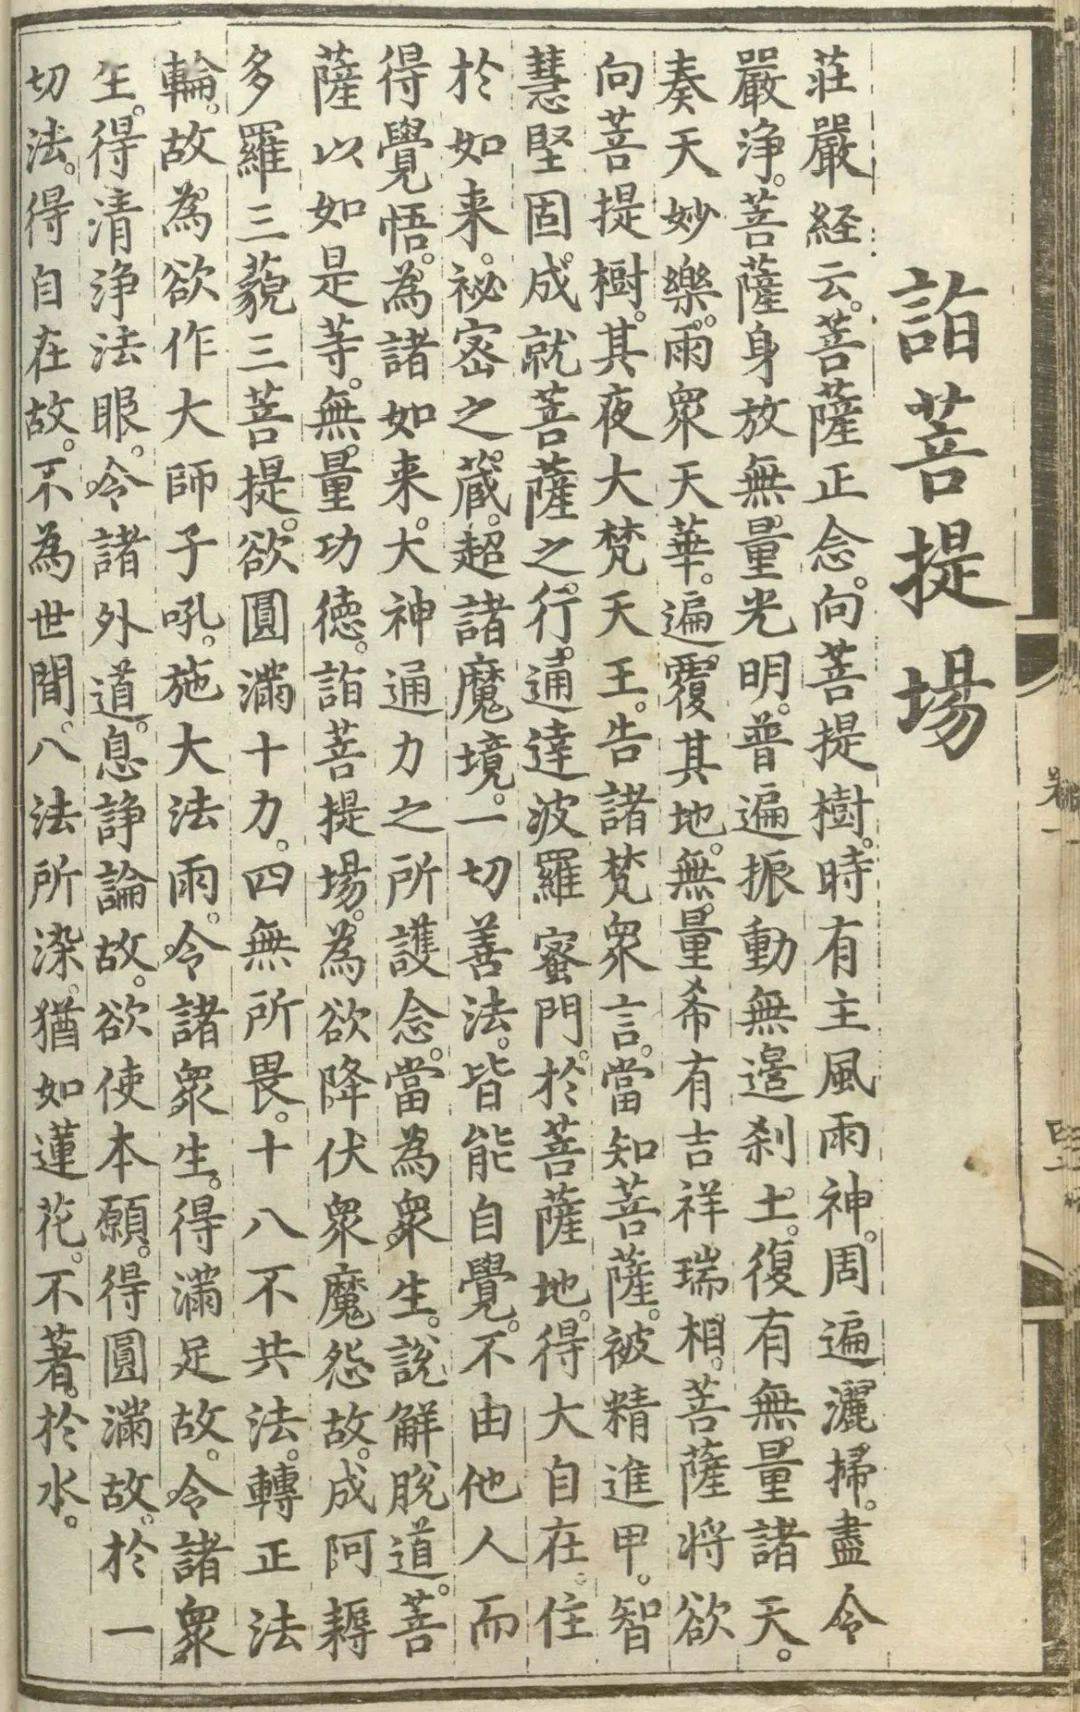 詣菩提場
莊嚴経云。菩薩正念。向菩提樹。時有主風雨神。周遍灑掃。盡令
嚴浄。菩薩身放無量光明。普遍振動無邉刹土。復有無量諸天。
奏天妙樂。雨衆天華。遍覆其地。無量希有吉祥瑞相。菩薩将欲
向菩提樹。其夜大梵天王。告諸梵衆言。當知菩薩。被精進甲。智
慧堅固。成就菩薩之行。通達波羅蜜門。於菩薩地。得大自在。住
於如来。祕密之蔵。超諸魔境。一切善法。皆能自覺。不由他人而
得覺悟。為諸如来。大神通力之所護念。當為衆生。說解脫道。菩
薩以如是等。無量功徳。詣菩提場。為欲降伏衆魔怨故。成阿耨
多羅三藐三菩提。欲圓滿十力。四無所畏。十八不共法。轉正法
輪。故為欲作大師子吼。施大法雨。令諸衆生。得滿足故。令諸衆
生。得清浄法眼。令諸外道。息諍論故。欲使本願。得圓滿故。於一
切法。得自在故。不為世間。八法所染。猶如蓮花。不著。於水。
卷一